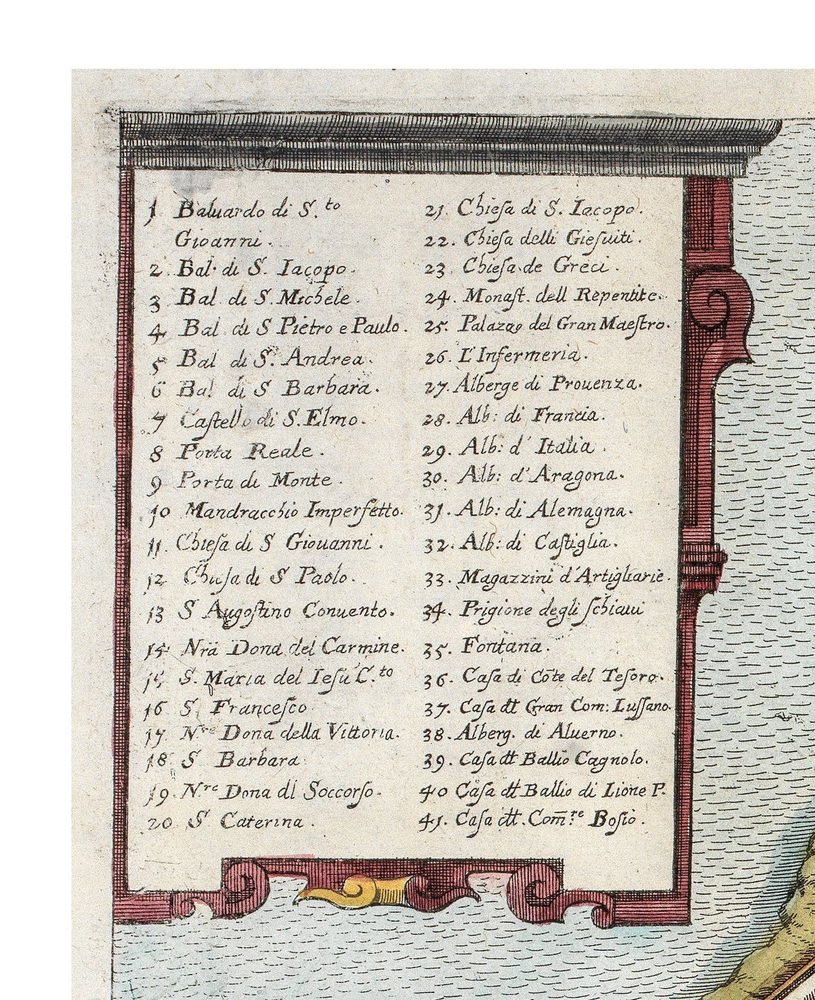 1 Baluardo di S.to
Gioanni.
2. Bal. di S. Iacopo.
3 Bal. di S. Michele.
4. Bal di S Pietro e Paulo.
5 Bal di S. Andrea.
6 Bal di S Barbara.
7 Castello di S. Elmo.
8 Porta Reale.
9 Porta di Monte.
10 Mandracchio Imperfetto.
11. Chiesa di S Giouanni.
12. Chiesa di S Paolo.
13 S Augostino Conuento.
14 Nra Dona del Carmine.
15 S. Maria del Iesu C.to
16 S. Francesco
17 N.re Dona della Vittoria.
18 S Barbara
19. N.re Dona dl Soccorso.
20 S Caterina.
21. Chiesa di S. Iacopo.
22. Chiesa delli Giesuiti.
23. Chiesa de Greci.
24. Monast. dell Repentite.
25. Palazzo del Gran Maestro.
26. L'Infermeria.
27. Alberge di Prouenza.
28. Alb: di Francia.
29. Alb: d'Italia.
30. Alb: d'Aragona.
31. Alb: di Alemagna.
32. Alb: di Castiglia.
33. Magazzini d'Artigliarie.
34. Prigione degli schiaui
35. Fontana.
36. Casa di Cõte del Tesoro.
37. Casa dt Gran Com: Lussano.
38. Alberg. di Aluerno.
39. Casa dt Ballio Cagnolo.
40 Casa dt Ballio di Lione P.
41. Casa dt. Com̃.re Bosio.